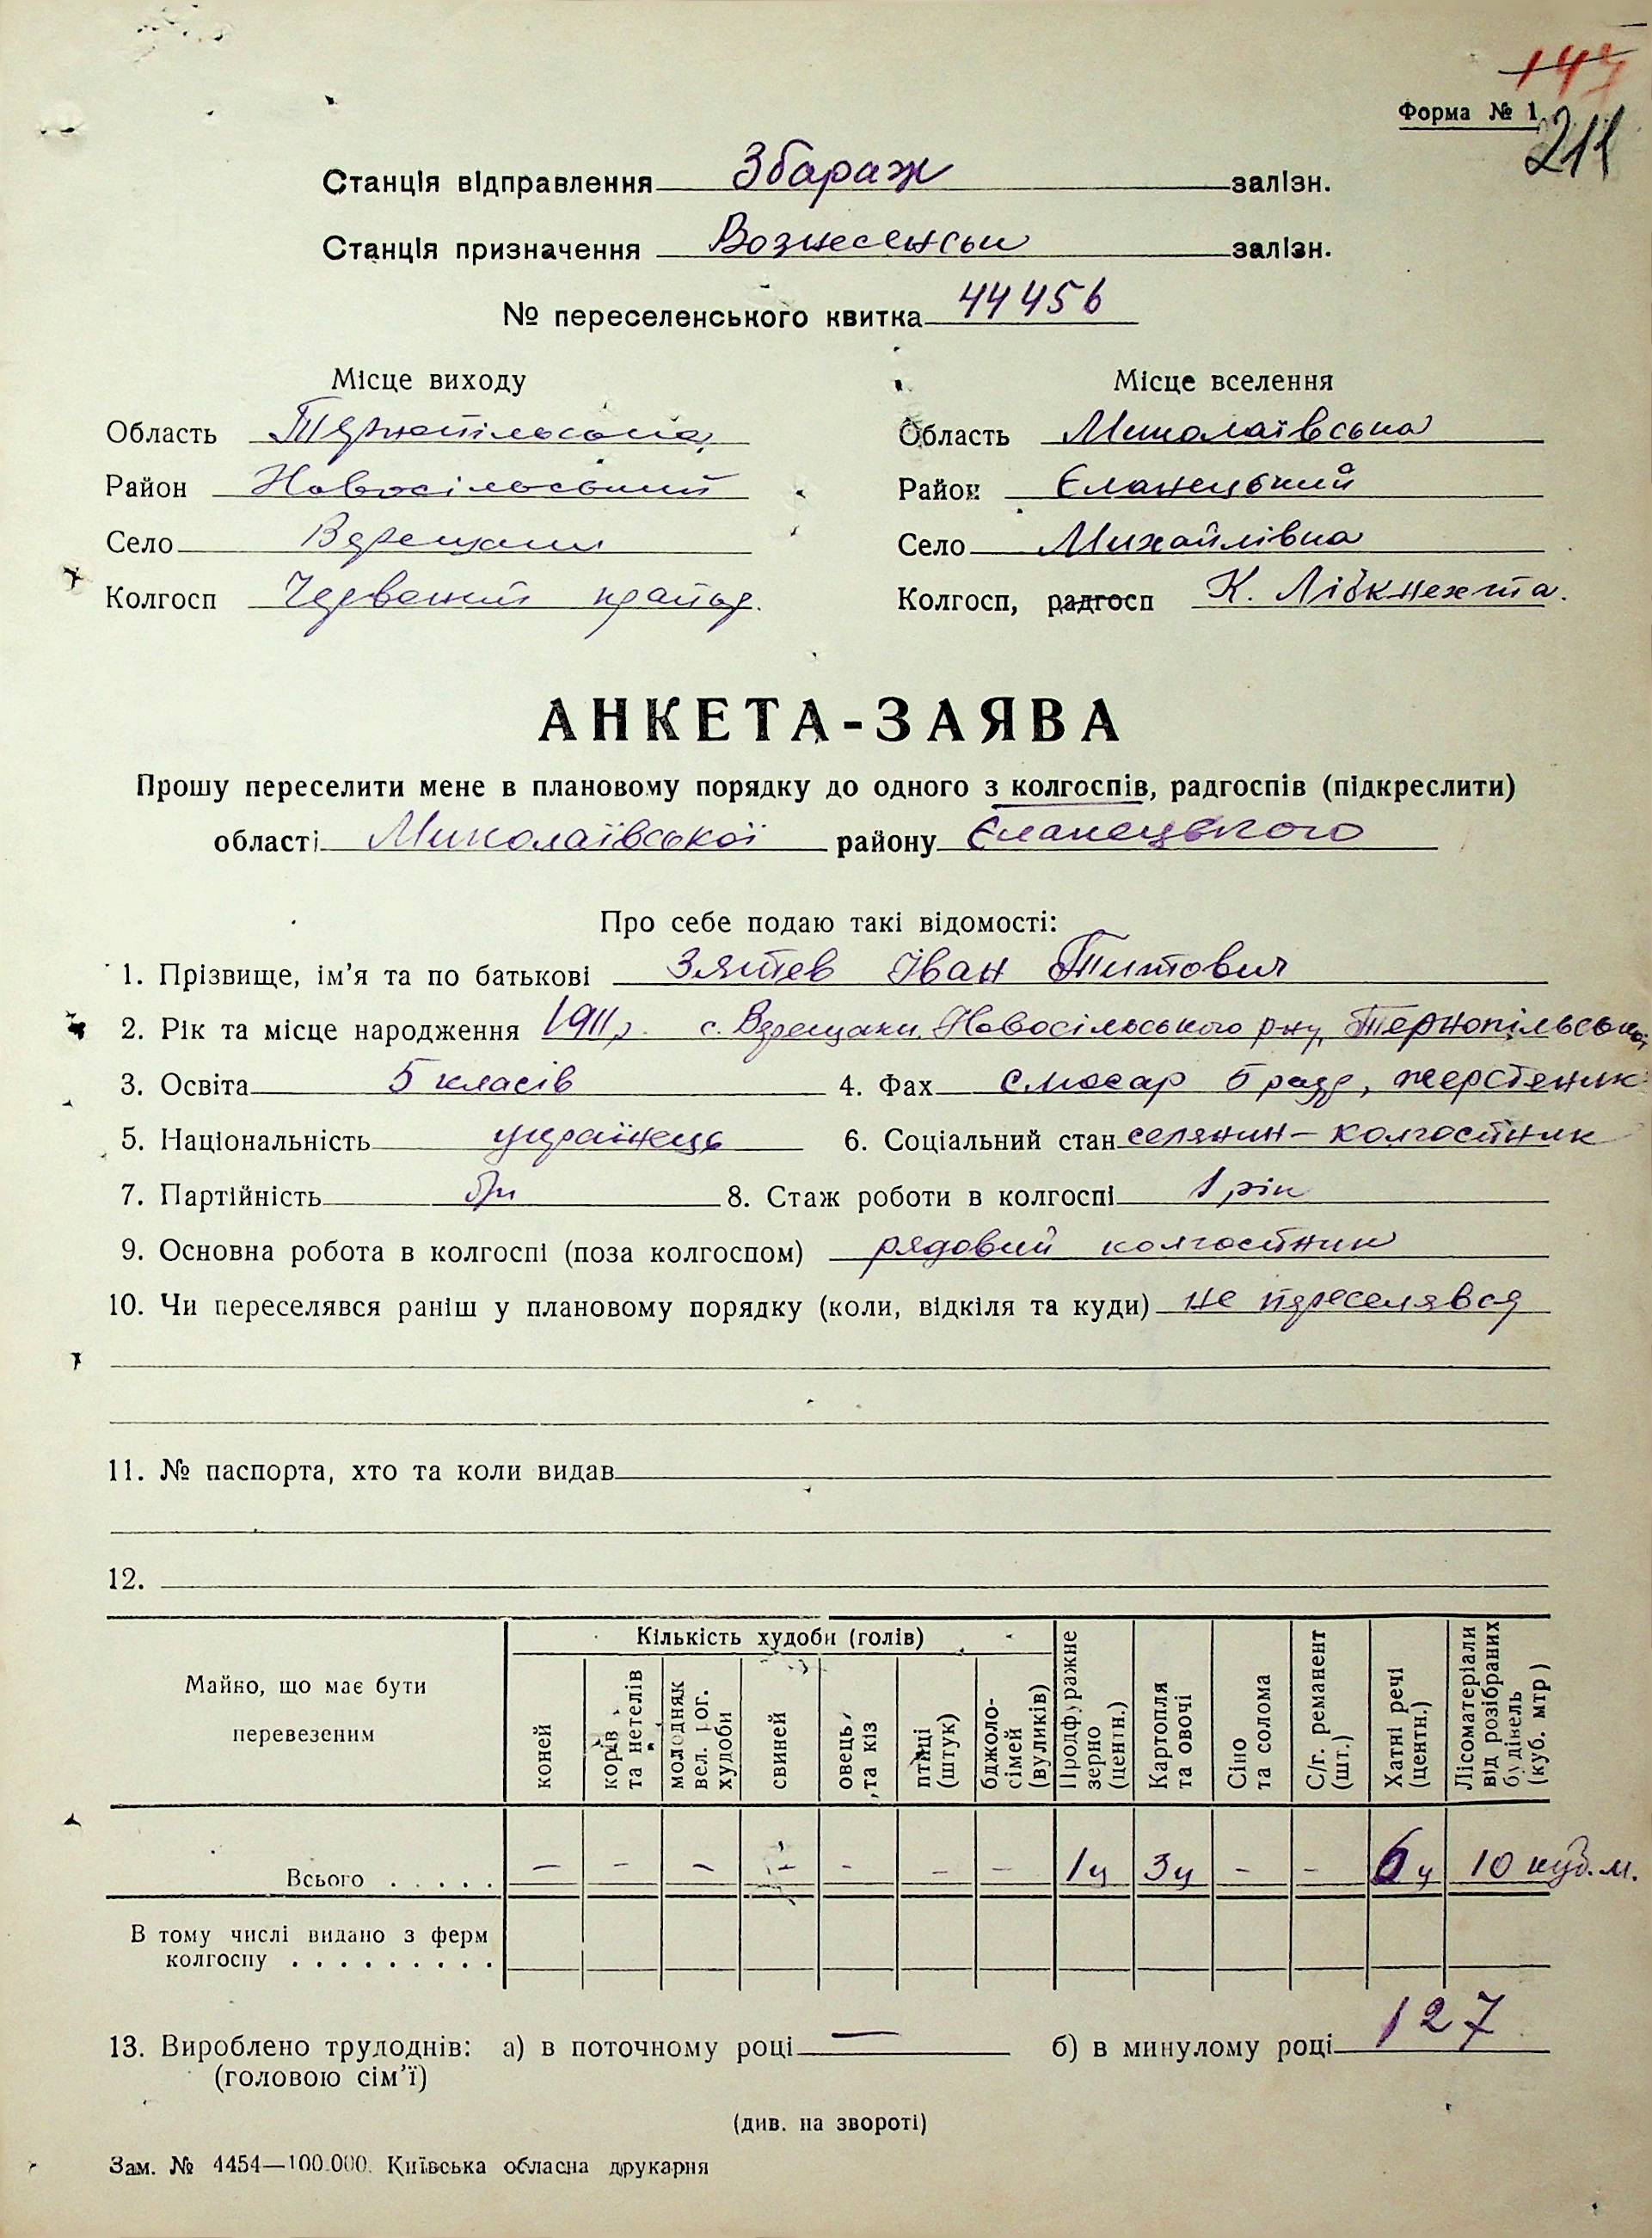 147
Форма № 1
211
Станція відправлення Збараж залізн.
Станція призначення Вознесенськ залізн.
№ переселенського квитка 44456
Місце виходу Місце вселення
Область Тернопільська Область Миколаївська
Район Новосільський Район Єланецький
Село Верещаки Село Михайлівка
Колгосп Червоний прапор. Колгосп, радгосп К. Лібкнехта.
АНКЕТА-ЗАЯВА
Прошу переселити мене в плановому порядку до одного з колгоспів, радгоспів (підкреслити)
області Миколаївської району Єланецького
Про себе подаю такі відомості:
1. Прізвище, ім'я та по батькові Зятев Іван Титович
2. Рік та місце народження 1911 р. с. Верещаки Новосільського р-ну, Тернопільської
3. Освіта 5 класів 4. Фах слюсар 5 розр, жерстяник
5. Національність українець 6. Соціальний стан селянин – колгоспник
7. Партійність б/п 8. Стаж роботи в колгоспі 1 рік
9. Основна робота в колгоспі (поза колгоспом) рядовий колгоспник
10. Чи переселявся раніш у плановому порядку (коли, відкіля та куди) не переселявся
11. № паспорта, хто та коли видав
12.
Майно, що має бути перевезеним
Кількість худоби (голів)
коней
корів та нетелів
молодняк вел. рог. худоби
свиней
овець та кіз
птиці (штук)
бджоло-сімей (вуликів)
Продфуражне зерно (центн.)
Картопля та овочі
Сіно та солома
С/г. реманент (шт.)
Хатні речі (центн.)
Лісоматеріали від розібраних будівель (куб. мтр)
Всього . . . . . – – – – – – – 1ц 3ц – – 6ц 10 куб. м.
В тому числі видано з ферм
колгоспу . . . . . . . . .
13. Вироблено трудоднів: а) в поточному році — б) в минулому році 127
(головою сім'ї)
(див. на звороті)
Зам. № 4454—100.000. Київська обласна друкарня